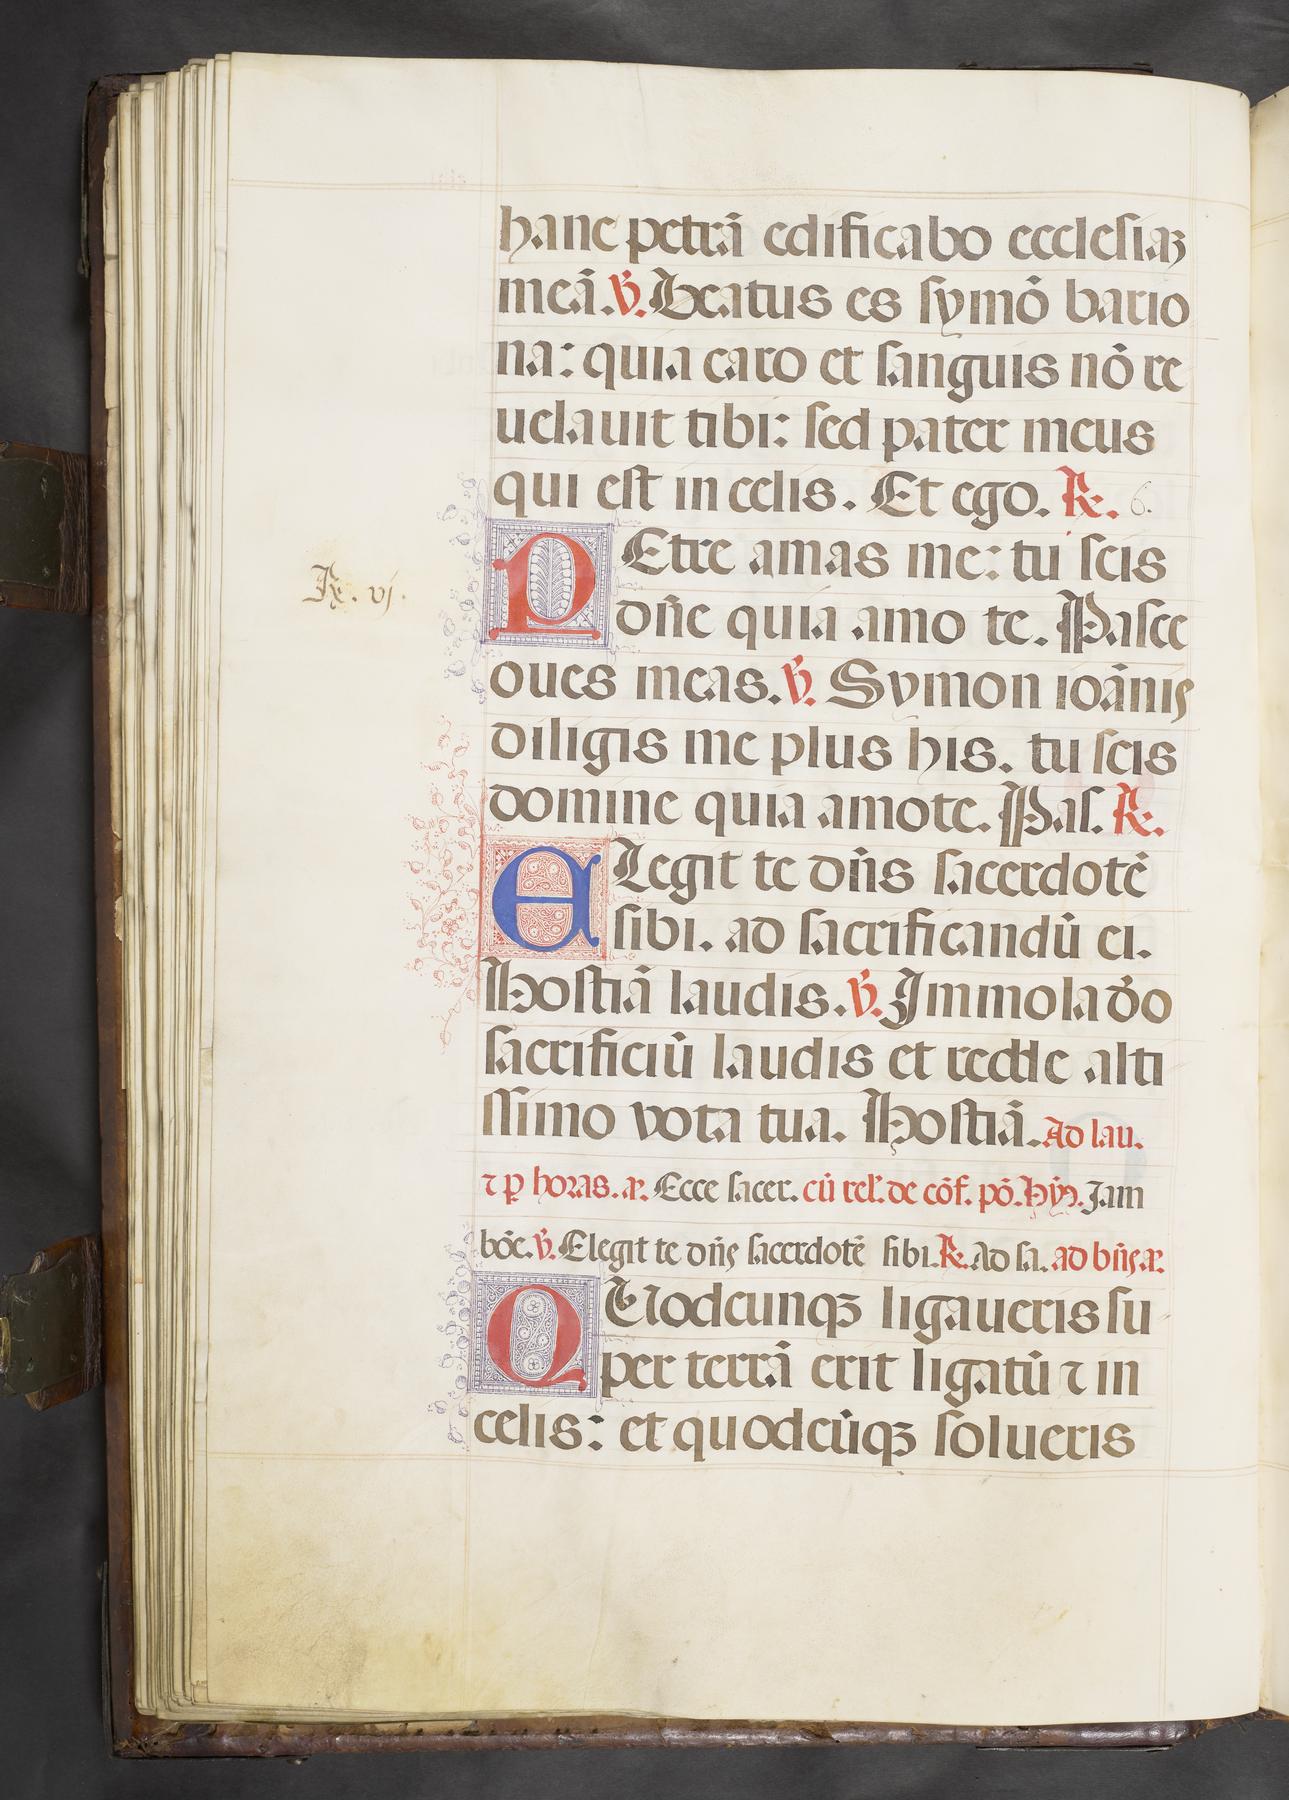 hanc petrã edificabo ecclesiaꝫ
meã. ℣. Beatus es symõ bario
na: quia caro et sanguis nõ re
uelauit tibi: sed pater meus
qui est in celis. Et ego. ℟. 6.
PEtre amas me: tu scis
dñe quia amo te. Pasce
℟. vj.
oues meas. ℣. Symon ioãnis
diligis me plus his. tu scis
domine quia amo te. Pas. ℟.
ELegit te dñs sacerdotẽ
sibi. ad sacrificandũ ei.
Hostiã laudis. ℣. Immola dõ
sacrificiũ laudis et redde alti
ssimo vota tua. Hostiã. Ad lau.
⁊ ꝑ horas. añ. Ecce sacer. cũ rel'. de cõf. põ. Hym̃. Jam
bõe. ℣. Elegit te dñs sacerdotẽ sibi. ℟. Ad sa. ad bñs añ.
QUodcunqꝫ ligaueris su
per terrã erit ligatũ ⁊ in
celis: et quodcũqꝫ solueris